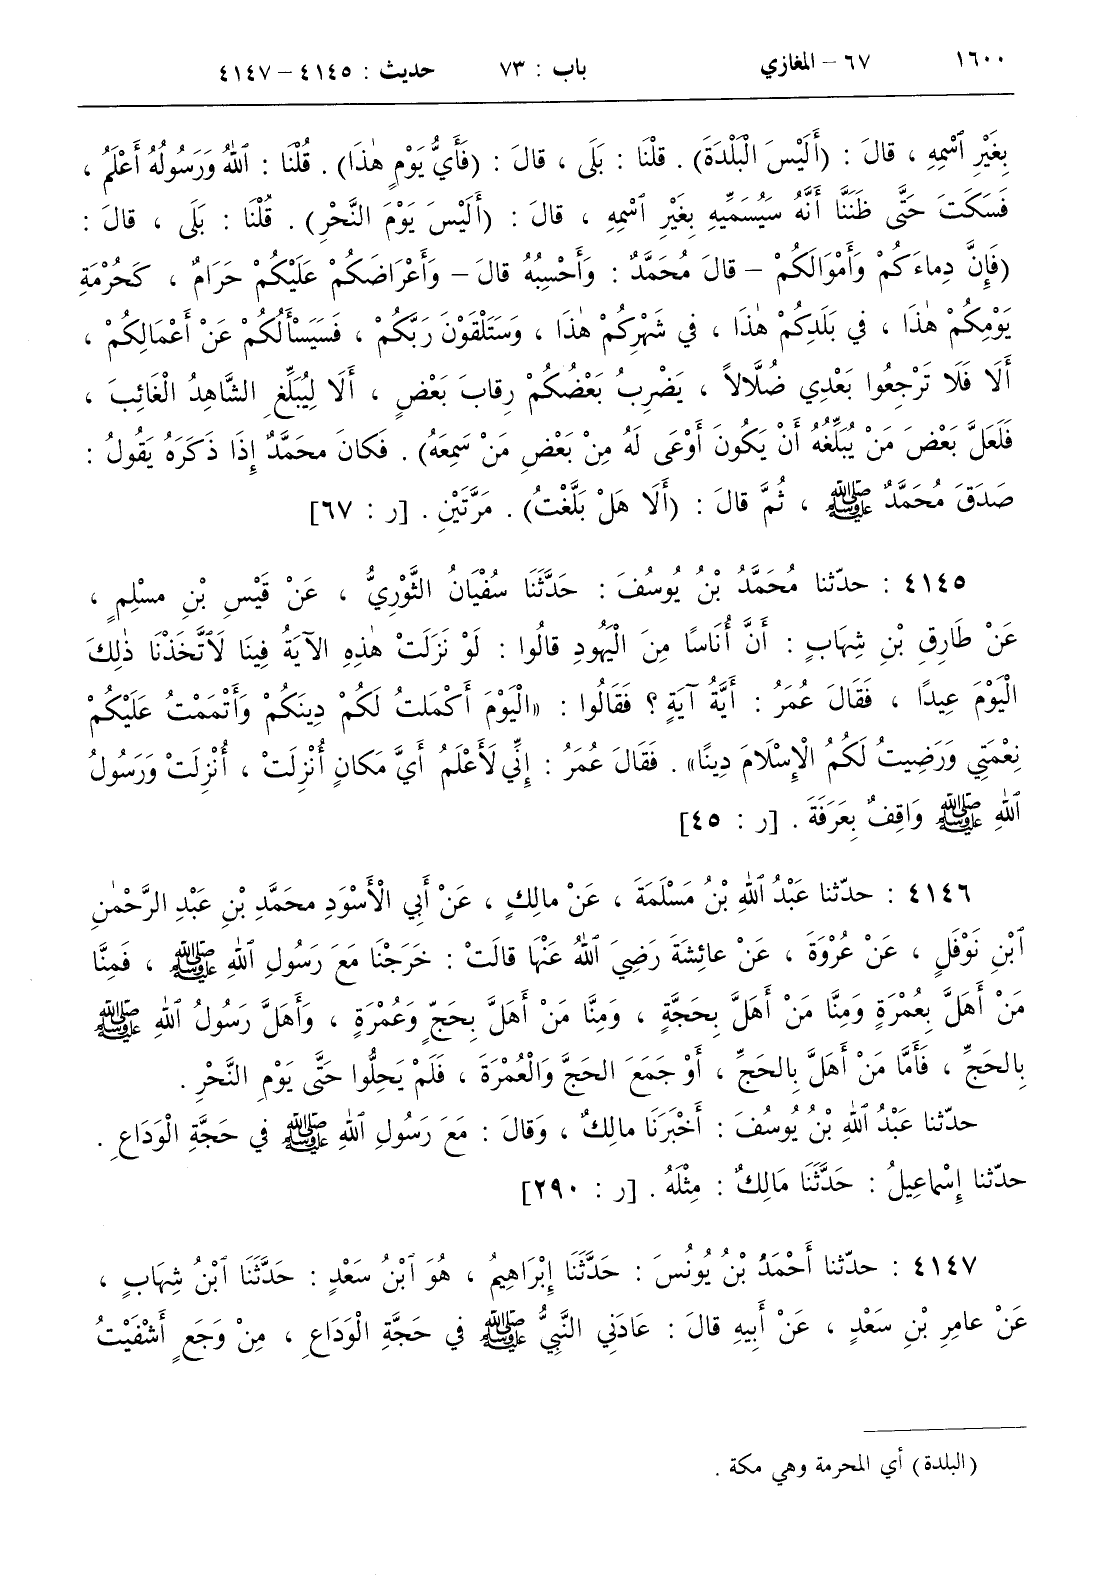 ١٦٠٠ ٦٧ – المغازي باب : ٧٣ حديث : ٤١٤٥ – ٤١٤٧
بِغَيْرِ ٱسْمِهِ ، قالَ : (أَلَيْسَ الْبَلْدَةَ) . قلْنَا : بَلَى ، قالَ : (فَأَيُّ يَوْمٍ هٰذَا) . قُلْنَا : ٱللهُ وَرَسُولُهُ أَعْلَمُ ،
فَسَكَتَ حَتَّى ظَنَنَّا أَنَّهُ سَيُسَمِّيهِ بِغَيْرِ ٱسْمِهِ ، قالَ : (أَلَيْسَ يَوْمَ النَّحْرِ) . قُلْنَا : بَلَى ، قالَ :
(فَإِنَّ دِماءَكُمْ وَأَمْوَالَكُمْ – قالَ مُحَمَّدٌ : وَأَحْسِبُهُ قالَ – وَأَعْرَاضَكُمْ عَلَيْكُمْ حَرَامٌ ، كَحُرْمَةِ
يَوْمِكُمْ هٰذَا ، في بَلَدِكُمْ هٰذَا ، في شَهْرِكُمْ هٰذَا ، وَسَتَلْقَوْنَ رَبَّكُمْ ، فَسَيَسْأَلُكُمْ عَنْ أَعْمَالِكُمْ ،
أَلَا فَلَا تَرْجِعُوا بَعْدِي ضُلَّالاً ، يَضْرِبُ بَعْضُكُمْ رِقابَ بَعْضٍ ، أَلَا لِيُبَلِّغِ الشَّاهِدُ الْغَائِبَ ،
فَلَعَلَّ بَعْضَ مَنْ يُبَلَّغُهُ أَنْ يَكُونَ أَوْعَى لَهُ مِنْ بَعْضِ مَنْ سَمِعَهُ) . فَكانَ محَمَّدٌ إِذَا ذَكَرَهُ يَقُولُ :
صَدَقَ مُحَمَّدٌ ﷺ ، ثُمَّ قالَ : (أَلَا هَلْ بَلَّغْتُ) . مَرَّتَيْنِ . [ر : ٦٧]
٤١٤٥ : حدّثنا مُحَمَّدُ بْنُ يُوسُفَ : حَدَّثَنَا سُفْيَانُ الثَّوْرِيُّ ، عَنْ قَيْسِ بْنِ مسْلِمٍ ،
عَنْ طَارِقِ بْنِ شِهَابٍ : أَنَّ أُنَاسًا مِنَ الْيَهُودِ قالُوا : لَوْ نَزَلَتْ هٰذِهِ الآيَةُ فِينَا لَٱتَّخَذْنَا ذٰلِكَ
الْيَوْمَ عِيدًا ، فَقَالَ عُمَرُ : أَيَّةُ آيَةٍ ؟ فَقَالُوا : «الْيَوْمَ أَكْمَلتُ لَكُمْ دِينَكُمْ وَأَتْمَمتُ عَلَيْكُمْ
نِعْمَتِي وَرَضِيتُ لَكُمُ الْإِسْلَامَ دِينًا» . فَقَالَ عُمَرُ : إِنِّي لَأَعْلَمُ أَيَّ مَكانٍ أُنْزِلَتْ ، أُنْزِلَتْ وَرَسُولُ
ٱللهِ ﷺ وَاقِفٌ بِعَرَفَةَ . [ر : ٤٥]
٤١٤٦ : حدّثنا عَبْدُ ٱللهِ بْنُ مَسْلَمَةَ ، عَنْ مالِكٍ ، عَنْ أَبِي الْأَسْوَدِ محَمَّدِ بْنِ عَبْدِ الرَّحْمٰنِ
ٱبْنِ نَوْفَلٍ ، عَنْ عُرْوَةَ ، عَنْ عائِشَةَ رَضِيَ ٱللهُ عَنْهَا قالَتْ : خَرَجْنَا مَعَ رَسُولِ ٱللهِ ﷺ ، فَمِنَّا
مَنْ أَهَلَّ بِعُمْرَةٍ وَمِنَّا مَنْ أَهَلَّ بِحَجَّةٍ ، وَمِنَّا مَنْ أَهَلَّ بِحَجٍّ وَعُمْرَةٍ ، وَأَهَلَّ رَسُولُ ٱللهِ ﷺ
بِالحَجِّ ، فَأَمَّا مَنْ أَهَلَّ بِالحَجِّ ، أَوْ جَمَعَ الحَجَّ وَالْعُمْرَةَ ، فَلَمْ يَحِلُّوا حَتَّى يَوْمِ النَّحْرِ .
حدّثنا عَبْدُ ٱللهِ بْنُ يُوسُفَ : أَخْبَرَنَا مالِكٌ ، وَقالَ : مَعَ رَسُولِ ٱللهِ ﷺ في حَجَّةِ الْوَدَاعِ .
حدّثنا إِسْماعِيلُ : حَدَّثَنَا مَالِكٌ : مِثْلَهُ . [ر : ٢٩٠]
٤١٤٧ : حدّثنا أَحْمَدُ بْنُ يُونُسَ : حَدَّثَنَا إِبْرَاهِيمُ ، هُوَ ٱبْنُ سَعْدٍ : حَدَّثَنَا ٱبْنُ شِهَابٍ ،
عَنْ عامِرِ بْنِ سَعْدٍ ، عَنْ أَبِيهِ قالَ : عَادَنِي النَّبِيُّ ﷺ في حَجَّةِ الْوَدَاعِ ، مِنْ وَجَعٍ أَشْفَيْتُ
(البلدة) أي المحرمة وهي مكة .